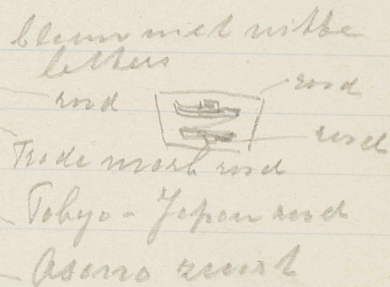 blauw met witte
letters
rood
rood
rood
Trade mark rood
Tokyo - Japan rood
Asano zwart